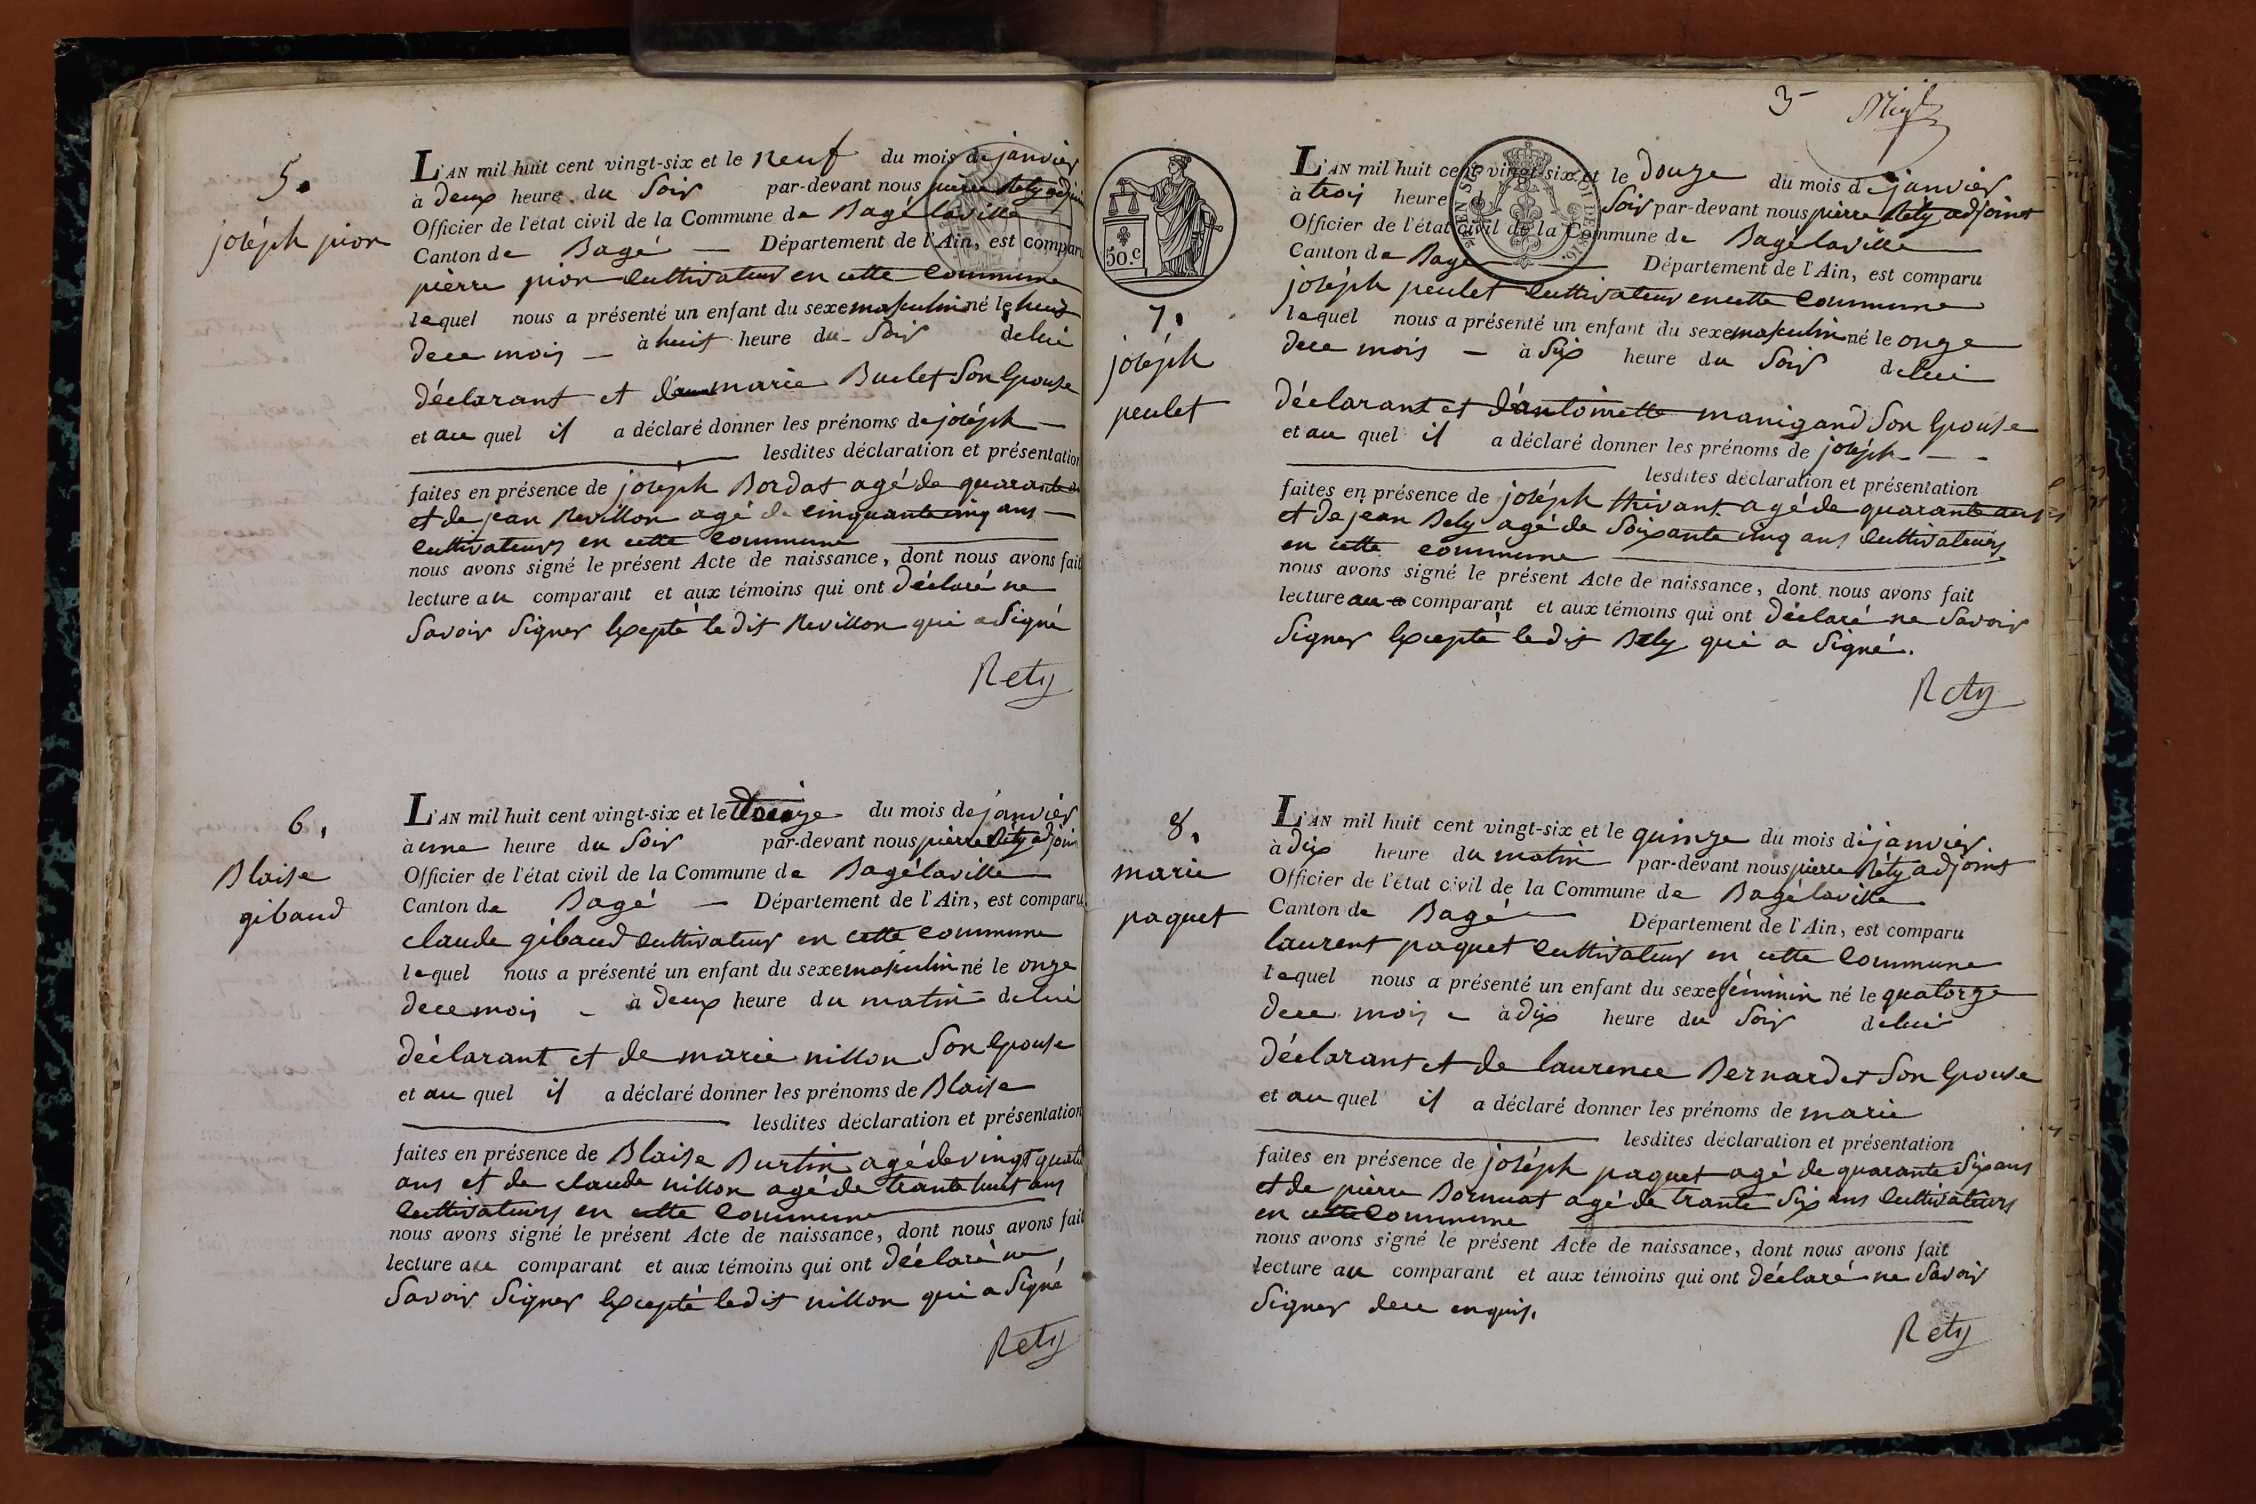 5.
joséph pion
L'AN mil huit cent vingt-six et le neuf du mois de janvier
à deux heure du soir par-devant nous pierre Rety adjoint
Officier de l'état civil de la Commune de Bagélaville
Canton de Bagé — Département de l'Ain, est comparu
pierre pion cultivateur en cette commune
lequel nous a présenté un enfant du sexe masculin né le huit
de ce mois — à huit heure du soir de lui
déclarant et de marie Buclet son épouse
et au quel il a déclaré donner les prénoms de joséph —
lesdites déclaration et présentation
faites en présence de joséph Bordat agé de quarante
et de jean Revillon agé de cinquante cinq ans —
cultivateurs en cette commune
nous avons signé le présent Acte de naissance, dont nous avons fait
lecture au comparant et aux témoins qui ont déclaré ne
savoir signer excepté le dit Revillon qui a signé
Rety
6.
Blaise
gibaud
L'AN mil huit cent vingt-six et le douze du mois de janvier
à une heure du soir par-devant nous pierre Réty adjoint
Officier de l'état civil de la Commune de Bagélaville
Canton de Bagé — Département de l'Ain, est comparu
claude gibaud cultivateur en cette commune
lequel nous a présenté un enfant du sexe masculin né le onze
de ce mois - à deux heure du matin de lui
déclarant et de marie nillon son épouse
et au quel il a déclaré donner les prénoms de Blaise
lesdites déclaration et présentation
faites en présence de Blaise Burtin agé de vingt quatre
ans et de claude nillon agé de trante huit ans
cultivateurs en cette commune
nous avons signé le présent Acte de naissance, dont nous avons fait
lecture au comparant et aux témoins qui ont déclaré ne
savoir signer excepté le dit nillon qui a signé
Rety
3
50.c
7.
joséph
peulet
L'AN mil huit cent vingt-six et le douze du mois de janvier
à trois heure d soir par-devant nous pierre Réty adjoint
Officier de l'état civil de la Commune de Bagélaville
Canton de Bagé Département de l'Ain, est comparu
joséph peulet cultivateur en cette commune
lequel nous a présenté un enfant du sexe masculin né le onze
de ce mois — à six heure du soir de lui
déclarant et d'antoinette manigand son épouse
et au quel il a déclaré donner les prénoms de joséph — -
lesdites déclaration et présentation
faites en présence de joséph thivant agé de quarante ans
et de jean Bely agé de soixante cinq ans cultivateurs
en cette commune
nous avons signé le présent Acte de naissance, dont nous avons fait
lecture au comparant et aux témoins qui ont déclaré ne savoir
signer excepté le dit Bely qui a signé.
Rety
8.
marie
paquet
L'AN mil huit cent vingt-six et le quinze du mois de janvier
à dix heure du matin par-devant nous pierre Réty adjoint
Officier de l'état civil de la Commune de Bagélaville
Canton de Bagé Département de l'Ain, est comparu
laurent paquet cultivateur en cette commune
lequel nous a présenté un enfant du sexe féminin né le quatorze
de ce mois - à dix heure du soir de lui
déclarant et de laurence Bernardet son épouse
et au quel il a déclaré donner les prénoms de marie
lesdites déclaration et présentation
faites en présence de joséph paquet agé de quarante six ans
et de pierre Bornuat agé de trante six ans cultivateurs
en cette commune
nous avons signé le présent Acte de naissance, dont nous avons fait
lecture au comparant et aux témoins qui ont déclaré ne savoir
signer de ce enquis.
Rety